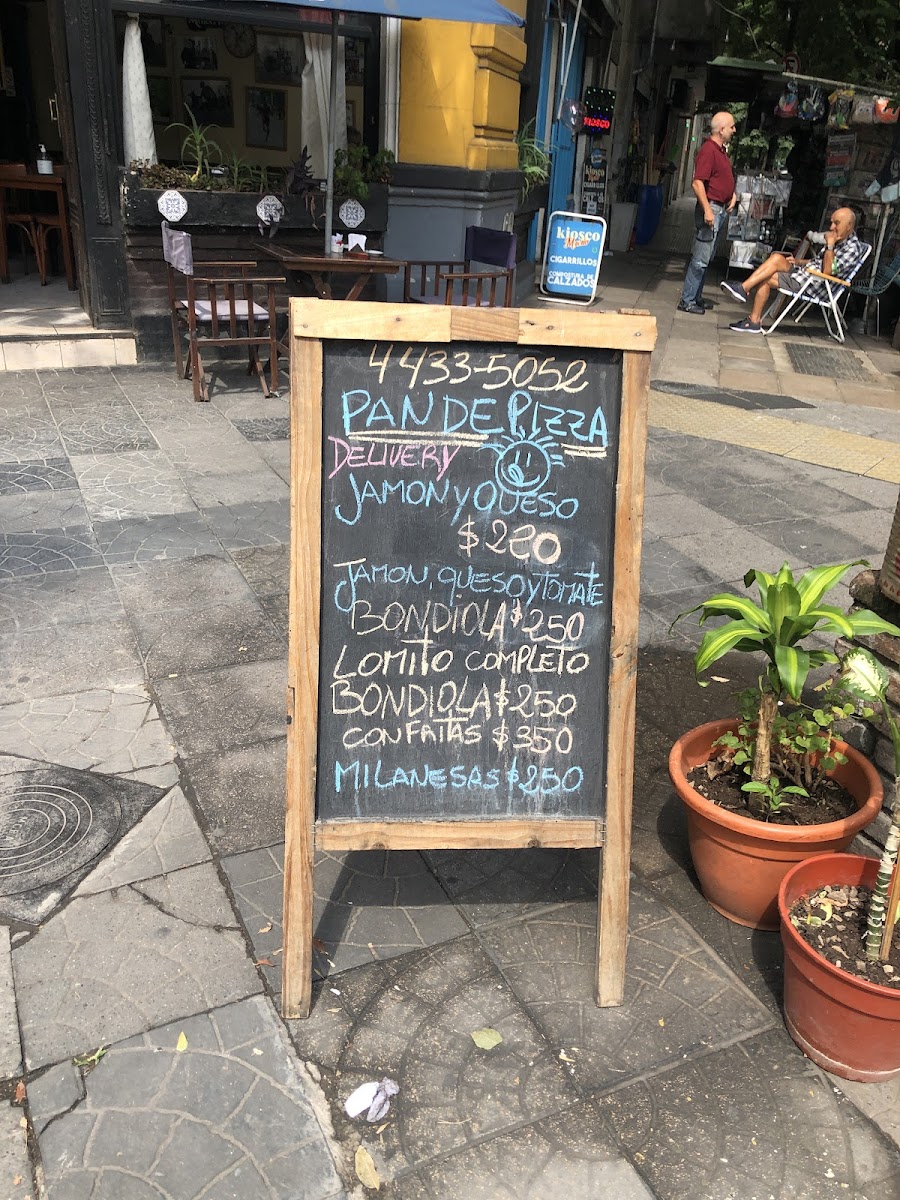 KIOSCO
KIOSCO
CIGARR
kiosco
CIGARRILLOS
COMPOSTURA DE
CALZADOS
4433-5052
PAN DE PIZZA
DELIVERY
JAMON Y QUESO
$220
JAMON, QUESO Y TOMATE
BONDIOLA $250
LOMITO COMPLETO
BONDIOLA $250
CON FRITAS $350
MILANESAS $250